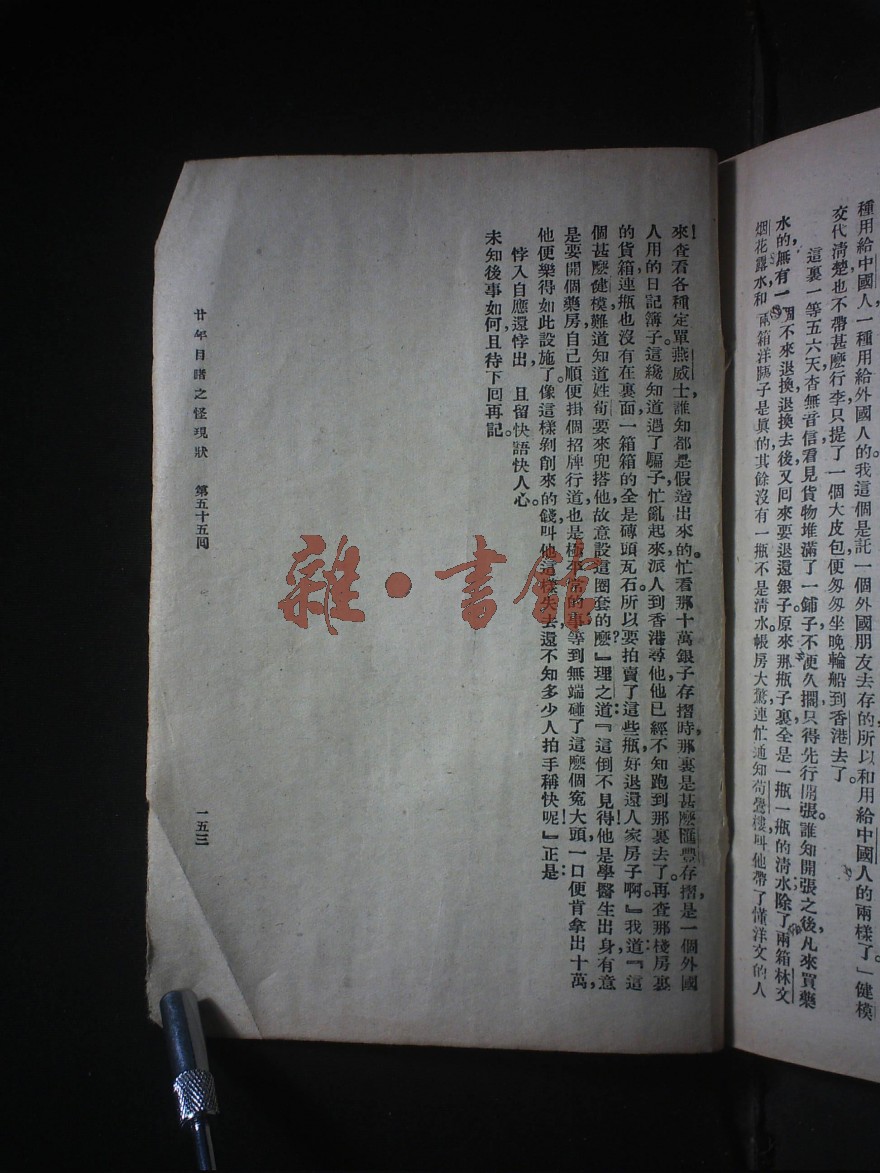 種用給中國人一種用給外國人的我這個是託一個外國朋友去存的所以和用給中國人的兩樣了。」健模
交代清楚也不帶甚麽行李只提了一個大皮包便匆匆坐晚輪船到香港去了。
這裏一等五六天杳無音信看見貨物堆滿了一鋪子不便久擱只得先行開張。誰知開張之後凡來買藥
水的無有一個不來退換退換去後又囘來要退還銀子。原來那瓶子裏全是一瓶一瓶的清水除了兩箱林文
烟花露水和兩箱洋胰子是真的其餘沒有一瓶不是清水。帳房大驚連忙通知苟鶯樓叫他帶了懂洋文的人
來查看各種定單燕威士誰知都是假造出來的。忙看那十萬銀子存摺時那裏是甚麽匯豐存摺是一個外國
人用的日記簿子。這纔知道遇了騙子忙亂起來派人到香港尋他他已經不知跑到那裏去了。再查那棧房裏
的貨箱連瓶也沒有在裏面一箱箱的全是磚頭瓦石所以要拍賣了這些瓶好退還人家房子啊』我道：『這
個甚麽健模難道知道姓苟要來兜搭他故意設這圈套的麽』理之道：『這倒不見得他是學醫生出身有意
是要開個藥房自己順便掛個招牌行道也是極平常的事等到無端碰了這麽個冤大頭一口便肯拿出十萬，
他便樂得如此設施了像這樣剝削來的錢叫他這樣失去還不知多少人拍手稱快呢！』正是：
悖入自應還悖出　且留快語快人心。
未知後事如何且待下囘再記。
廿年目睹之怪現狀　第五十五囘　一五三
雜·書館